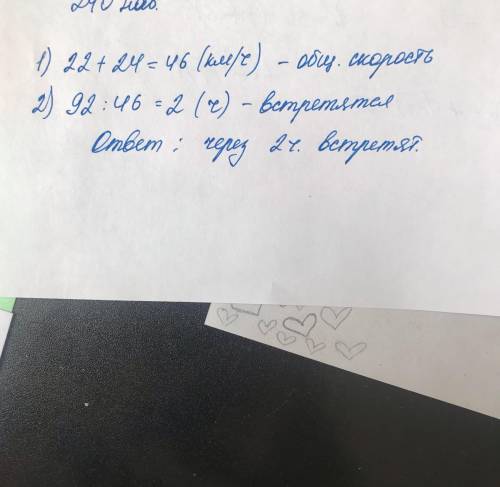 240
1) 22 + 24 = 46 (км/ч) - общ. скорость
2) 92 : 46 = 2 (ч) - встретятся
Ответ: через 2ч. встретят.